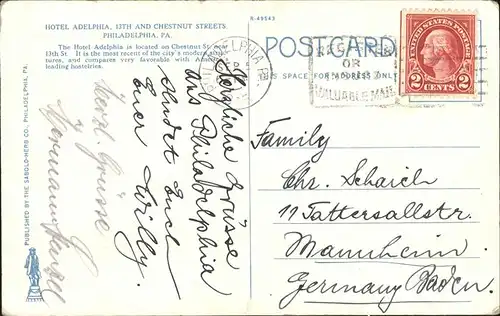 HOTEL ADELPHIA, 13TH AND CHESTNUT STREETS,
PHILADELPHIA, PA.
The Hotel Adelphia is located on Chestnut St. near
13th St. It is the most recent of the city's modern
tures, and compares very favorable with
leading hostelries.
R-49543
POSTCARD
THIS SPACE FOR ADDRESS ONLY
OR
VALUABLE MAIL
UNITED STATES POSTAGE
2 CENTS 2
Herzliche Grüsse
aus Philadelphia
sendet Euch
Euer Willy.
Herzl. Grüsse
Hermann
Family
Chr. Schaich
11 Tattersallstr.
Mannheim
Germany Baden.
PUBLISHED BY THE SABOLD-HERB CO., PHILADELPHIA, PA.